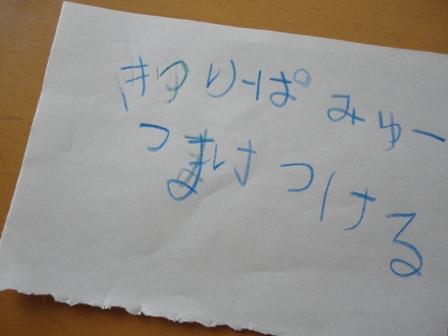 きゅりーぱみゅー
つまけつける